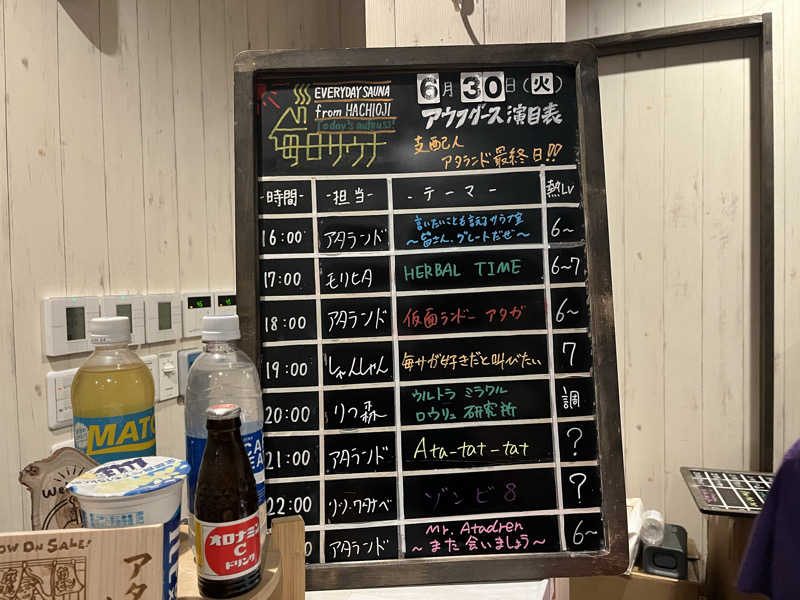 EVERYDAY SAUNA
from HACHIOJI
today's aufguss!
毎日サウナ
6月30日(火)
アウフグース演目表
支配人
アタランド最終日!!
-時間- -担当- -テーマー- 熱LV
16:00 アタランド 6~
~皆さん、グレートだぜ~
17:00 モリヒA HERBAL TIME 6~7
18:00 アタランド 仮面ランドー アタガ 6~
19:00 しゃんしゃん 毎サガ好きだと叫びたい 7
20:00 りつ森 ウルトラ ミラクル
ロウリュ 研究所 調
21:00 アタランド Ata-tat-tat ?
22:00 リ・ソ・ワタナベ ゾンビ8 ?
アタランド Mr. Atadren
~また会いましょう~ 6~
MATC
オロナミン
C
ドリンク
We
OW ON SALE!
アタ